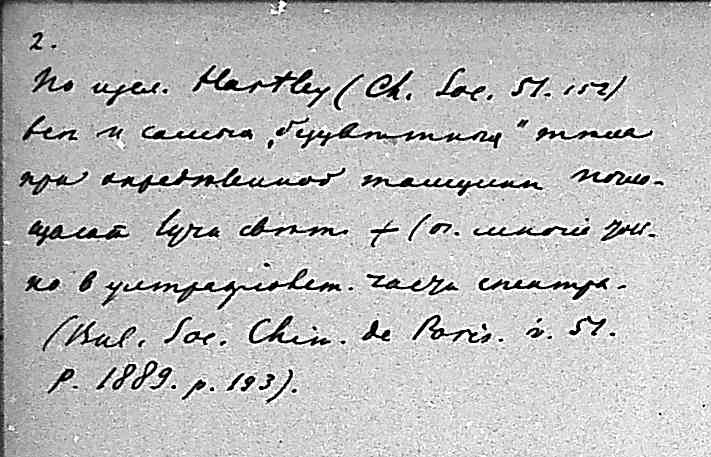 2.
По изсл. Hartley (Ch. Soc. 51. 152)
все и самыя „безцвѣтныя" тѣла
при опредѣленной толщине погло-
щают лучи свѣт. + (от. многие толь-
ко в ультрафіолет. части спектра.
(Bul. Soc. Chim. de Paris. v. 51.
P. 1889. p. 193).